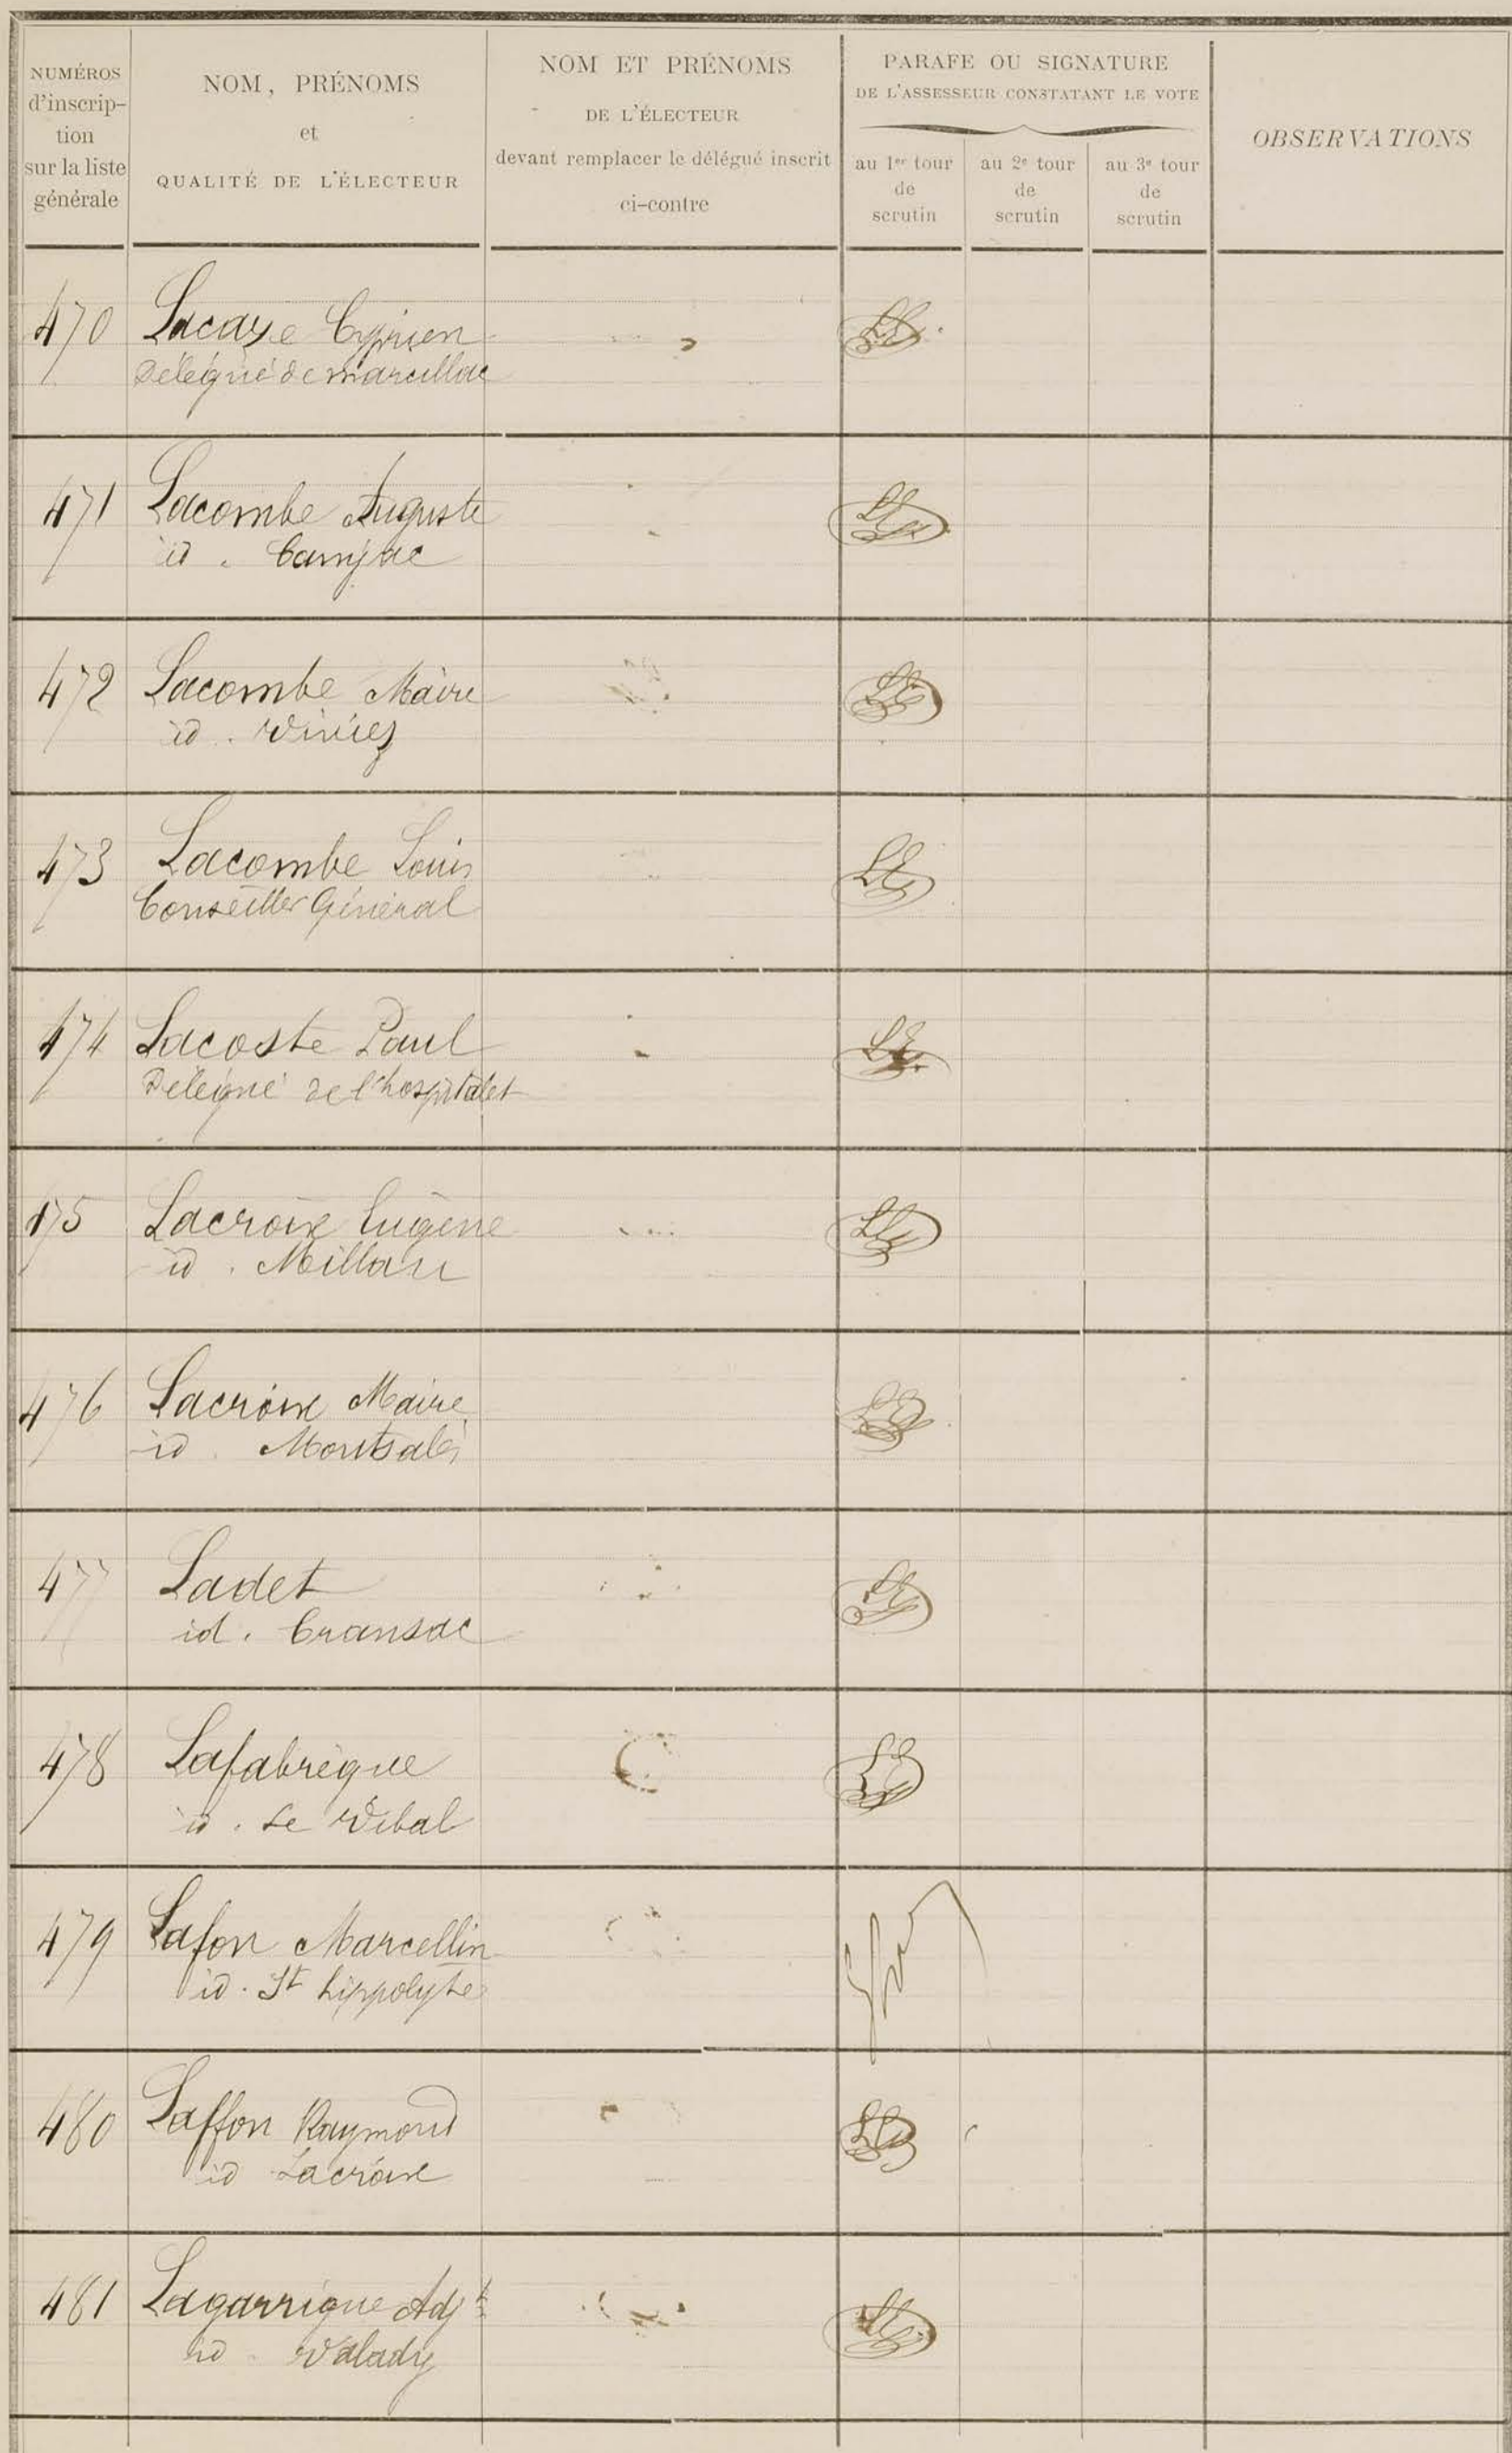 NUMÉROS
d'inscrip-
tion
sur la liste
générale
NOM, PRÉNOMS
et
QUALITÉ DE L'ÉLECTEUR
NOM ET PRÉNOMS
DE L'ÉLECTEUR
devant remplacer le délégué inscrit
ci-contre
PARAFE OU SIGNATURE
DE L'ASSESSEUR CONSTATANT LE VOTE
au 1er tour
de
scrutin
au 2e tour
de
scrutin
au 3e tour
de
scrutin
OBSERVATIONS
470 Lacaze Cyprien
Délégué de Marcillac
471 Lacombe Auguste
id. Camjac
472 Lacombe Maire
id. Viviez
473 Lacombe Louis
Conseiller Général
474 Lacoste Paul
Délégué de l'hospitalet
475 Lacroix Eugène
id. Millau
476 Lacroix Maire
id. Montsalès
477 Ladet
id. Cransac
478 Lafabrègue
id. Le Vibal
479 Lafon Marcellin
id. St hippolyte
480 Laffon Raymond
id Lacroix
481 Lagarrigue Adjt
id Valady